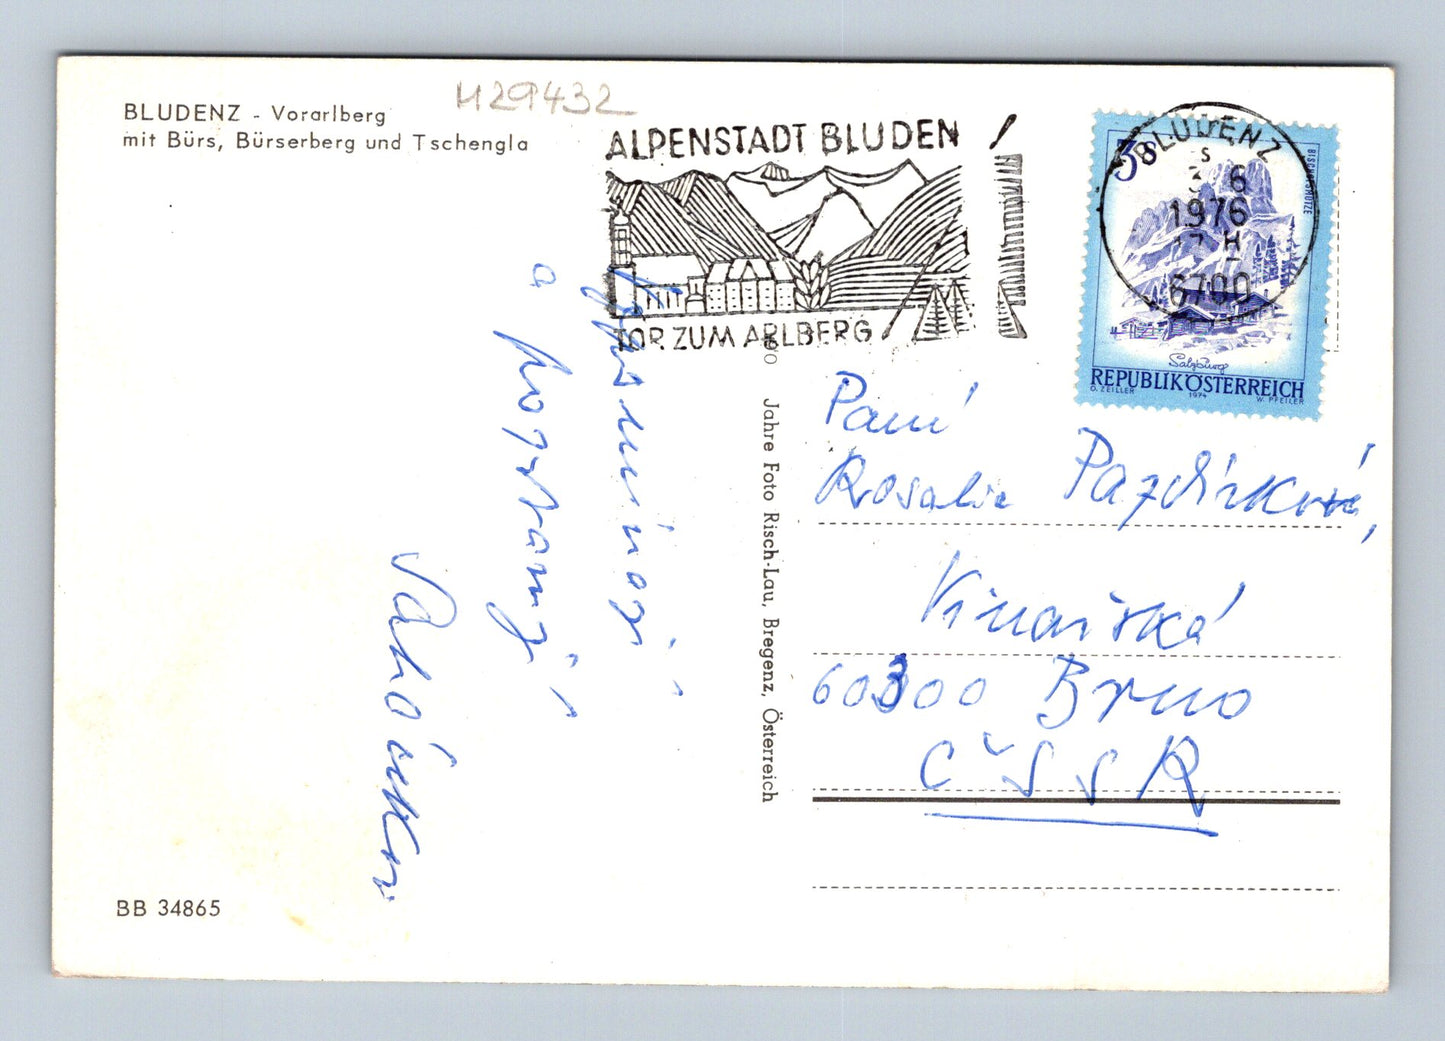 BLUDENZ - Vorarlberg
mit Bürs, Bürserberg und Tschengla
H29432
ALPENSTADT BLUDEN
TOR ZUM ARLBERG
BLUDENZ
6
1976
6700
BISCHOFSMÜTZE
Salzburg
REPUBLIK ÖSTERREICH
O. ZEILER 1974 W. PFEILER
Vzpomínají
a pozdravují
Jahre Foto Risch-Lau, Bregenz, Österreich
Paní
Rosalie Pazdírková,
Vinařská
60300 Brno
ČSSR
BB 34865